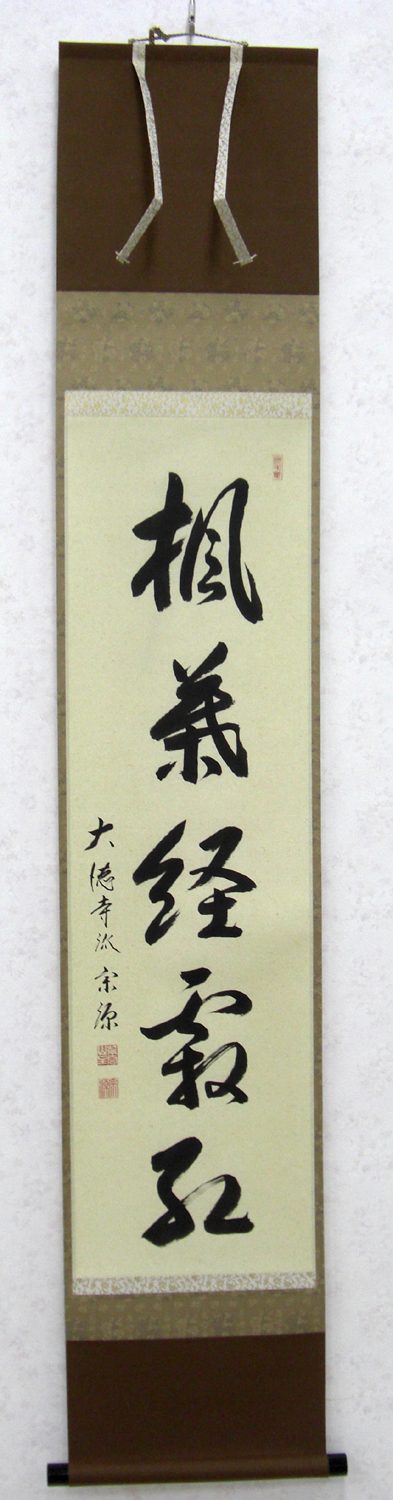 楓葉経霜紅
大徳寺派宗源